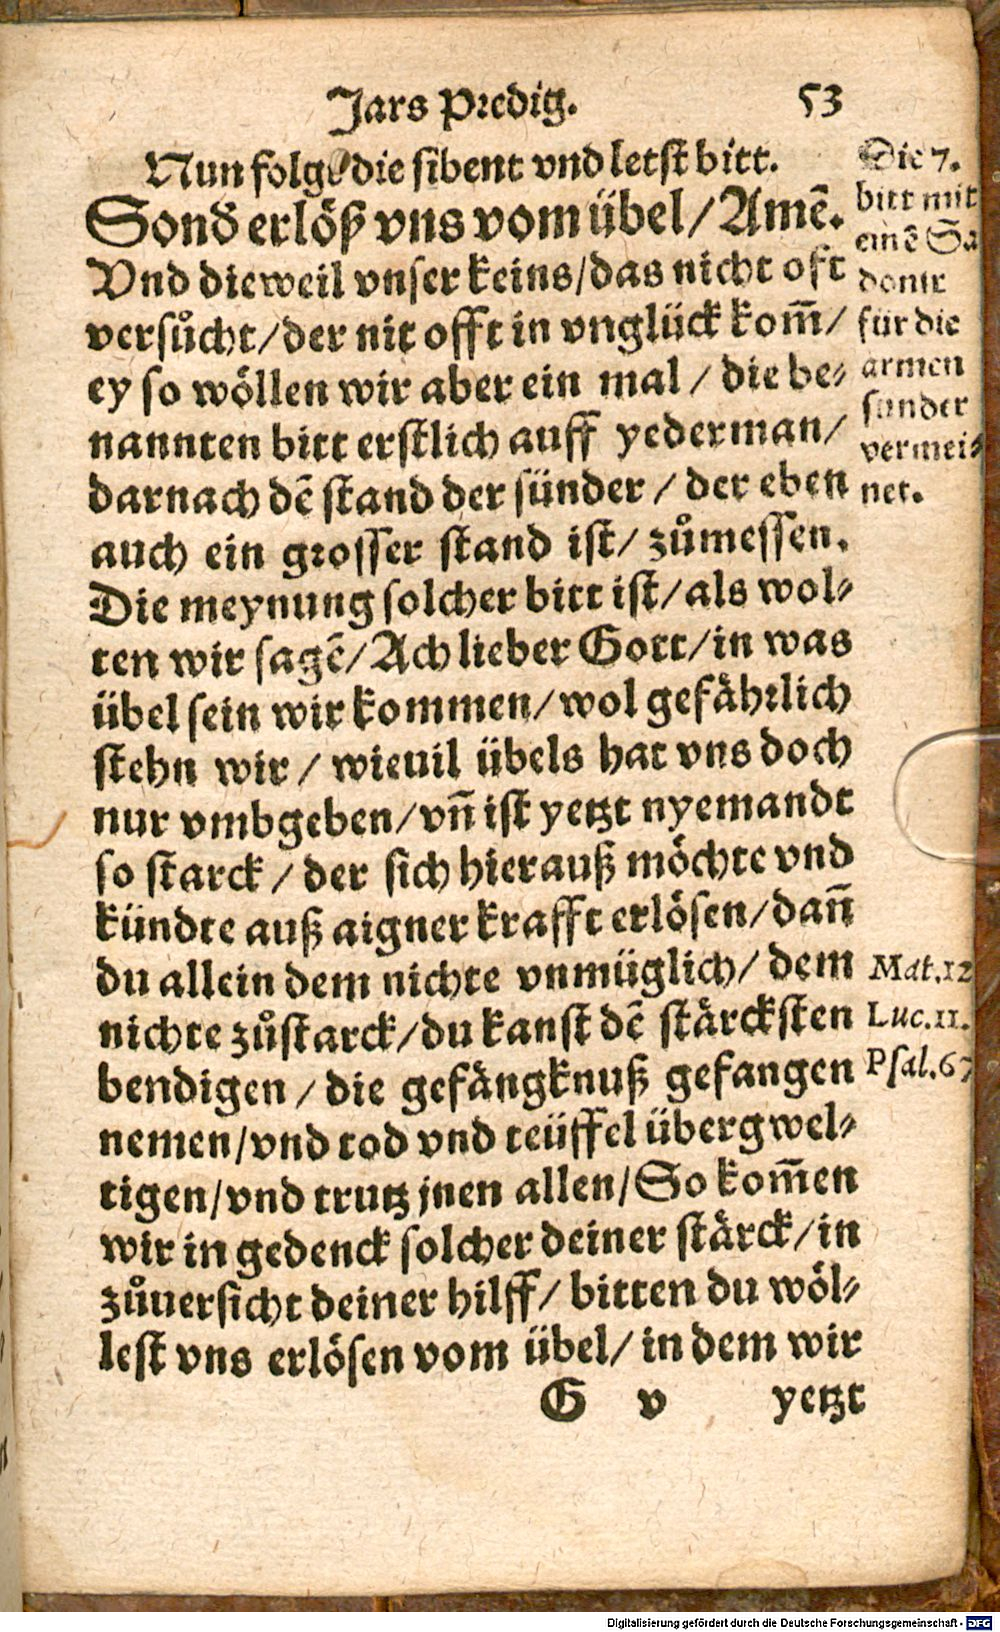 Jars Predig. 53
Nun folgt die sibent vnd letst bitt.
Sond erlöß vns vom übel / Amē.
Vnd dieweil vnser keins / das nicht oft
versůcht / der nit offt in vnglück kom̄ /
ey so wöllen wir aber ein mal / die be⸗
nannten bitt erstlich auff yederman /
darnach dē stand der sünder / der eben
auch ein grosser stand ist / zůmessen.
Die meynung solcher bitt ist / als wol⸗
ten wir sagē / Ach lieber Gott / in was
übel sein wir kommen / wol gefährlich
stehn wir / wieuil übels hat vns doch
nur vmbgeben / vn̄ ist yetzt nyemandt
so starck / der sich hierauß möchte vnd
kündte auß aigner krafft erlösen / dan̄
du allein dem nichte vnmüglich / dem
nichte zůstarck / du kanst dē stärcksten
bendigen / die gefängknuß gefangen
nemen / vnd tod vnd teüffel übergwel⸗
tigen / vnd trutz jnen allen / So kom̄en
wir in gedenck solcher deiner stärck / in
zůuersicht deiner hilff / bitten du wöl⸗
lest vns erlösen vom übel / in dem wir
G v yetzt
Die 7.
bitt mit
einē Sa
domt
für die
armen
sünder
vermei⸗
net.
Mat.12
Luc.11.
Psal.67
Digitalisierung gefördert durch die Deutsche Forschungsgemeinschaft - DFG